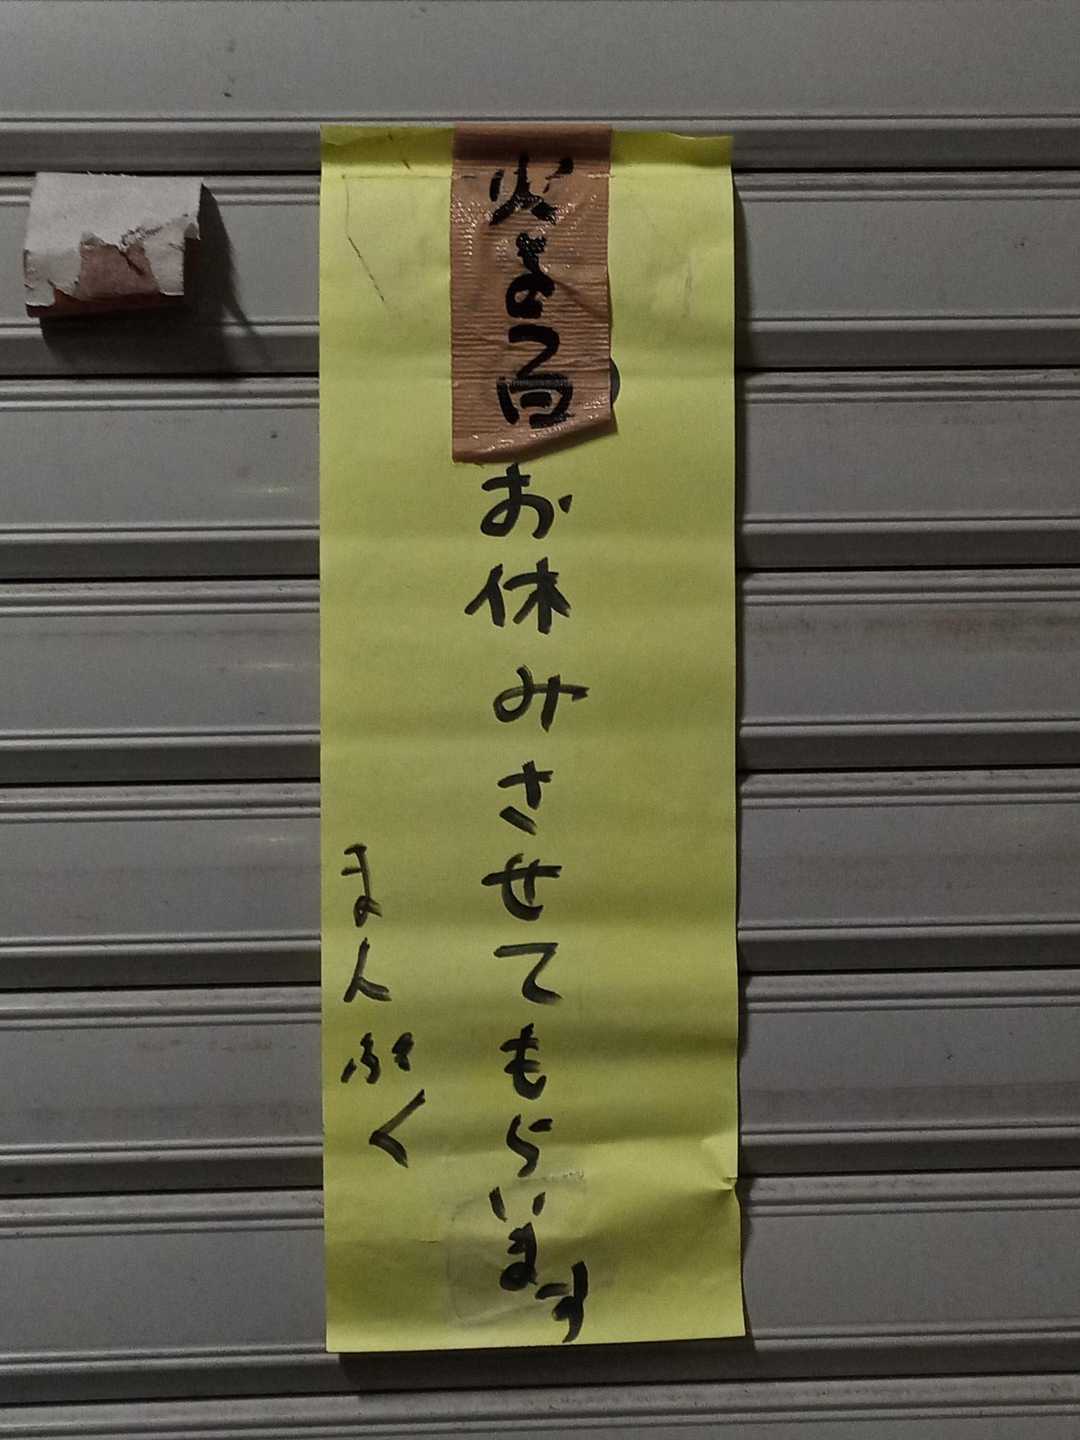 火よう日お休みさせてもらいます
まんぷく